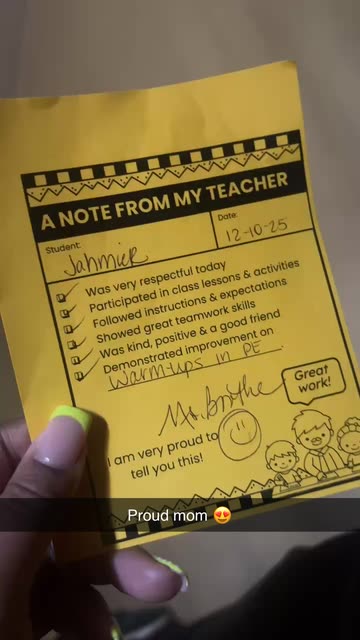 A NOTE FROM MY TEACHER
Student: Jahmier
Date: 12-10-25
Was very respectful today
Participated in class lessons & activities
Followed instructions & expectations
Showed great teamwork skills
Was kind, positive & a good friend
Demonstrated improvement on
Warm-ups in PE.
Great
work!
I am very proud to
tell you this!
Proud mom 😍